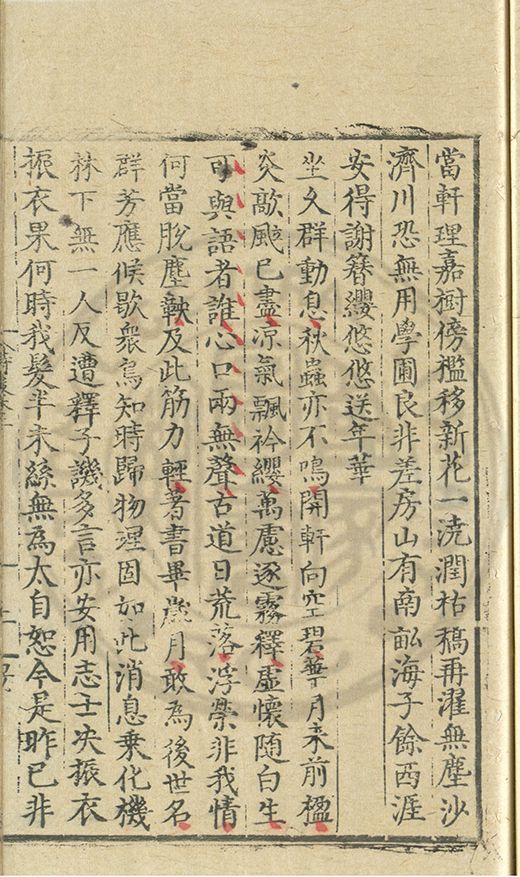 當軒理嘉樹傍檻移新花一澆潤枯稿再濯無塵沙
濟川恐無用學圃良非差房山有南畝海子餘西涯
安得謝簪纓悠悠送年華
坐久群動息秋蟲亦不鳴開軒向空碧華月來前楹
炎歊颷已盡凉氣飄衿纓萬慮逐霧釋虛懷隨白生
可與語者誰心口兩無聲古道日荒落浮榮非我情
何當脫塵鞅及此筋力輕著書畢歲月敢為後世名
群芳應候歇衆鳥知時歸物理固如此消息乗化機
林下無一人反遭釋子譏多言亦安用志士决振衣
振衣果何時我髮半未絲無為太自恕今是昨已非